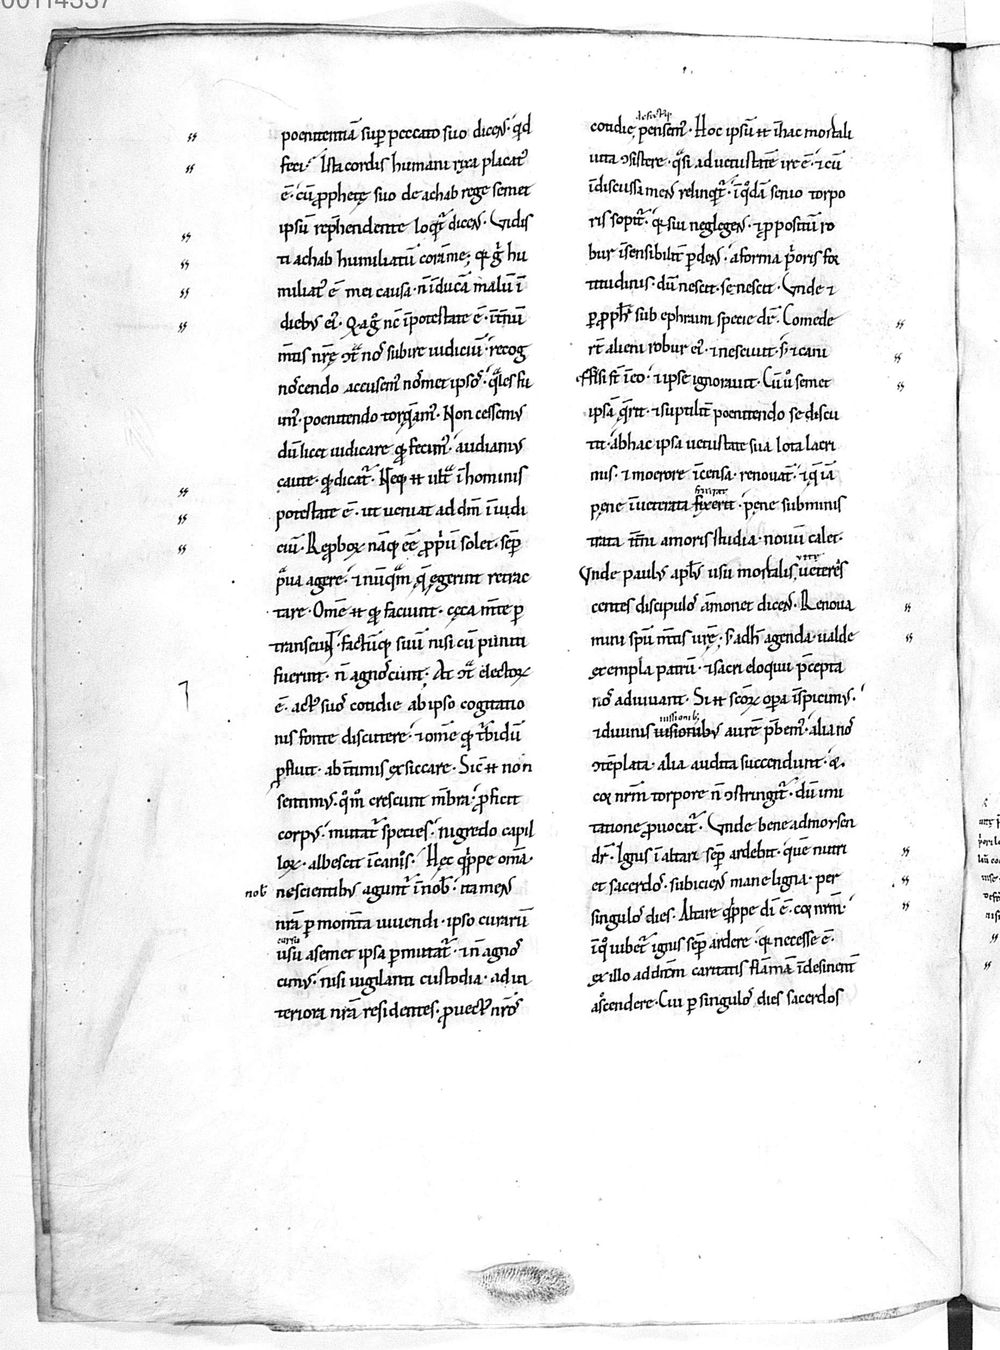 poenitentiā sup̄ peccato suo dicens· quid
feci· Ista cordis humani ira placat᷑
ē· cū ꝓphetę suo de achab rege semet
ipsū rep̄hendente loq̄t᷑ dicens· Vidis
ti achab humiliatū corā me; q̄ g̊ hu
miliat᷑ ē mei causa· n̄ īducā malū ī
dieb᷒ ei᷒·
cundo accusem᷒ nosmet ipsos·
im᷒· poenitendo Non cessem᷒
dū licet iudicare ꝙ fecim᷒· audiam᷒
caute· ꝙ dicat᷑· hominis
potestate ē· ut ueniat ad dm̄ ī iudi
ciū· Reproboꝝ nāq; ēē ꝓp̄ū solet· sēp
p̄ua agere· ⁊ nūq̄m q̄ egerint retrac
tare· Om̄e ꝙ faciunt· cęca m̄te ꝑ
transeunt· factūq; suū nisi cū puniti
fuerint· n̄ agnoscunt· At electoꝝ
ē· act᷒ suos cotidie ab ipso cogitatio
nis fonte discutere· ⁊ om̄e ꝙ t᷑bidū
ꝓfluit· ab īmis exsiccare· Sic̄ non
sentim᷒· q̄m̄ crescunt m̄bra· ꝓficit
corp᷒· mutat᷑ species· nigredo capil
loꝝ· albescit ī canis· Hęc q̄ppe om̄a·
nob̄ nescientib᷒ agunt᷑ ī nob̄· ita mens
nr̄a ꝑ mom̄ta uiuendi· ipso curarū
cursu
usu a semet ipsa ꝑmutat᷑· ⁊ n̄ agnos
cim᷒· nisi uigilanti custodia· ad in
teriora nr̄a residentes· ꝓuect᷒ nr̄os
cotidie, pensem᷒· Hoc ipsū ī hac mortali
uita ↄsistere· q̄si ad uetustatē ire ē· ⁊ cū
īdiscussa mens relinq̄t᷑· ī q̊dā senio torpo
ris sopit᷑· sui neglegens· ⁊ ꝓpositū ro
bur īsensibilit̄ ꝑdens· a forma p̄oris for
titudinis· dū nescit· se nescit· Vnde ⁊
ꝑ ꝓph̄ sub ephraim specie dr̄· Comede
rt̄ alieni robur ei᷒· ⁊ nesciuit· s; ⁊ cani
effusi st̄ ī eo· ⁊ ipse ignorauit· Cū ů semet
ipsā q̄rit· ⁊ suptilit̄ poenitendo se discu
tit· ab hac ipsa uetustate sua lota lacri
mis· ⁊ moerore īcensa· renouat᷑· ⁊ q̄ iā
pene īueterata fixerit· pene subminis
trata īt᷑ni amoris studia· nouū calet·
Vnde paul᷒ apl̄s usu mortalis, ueteres
centes discipulos āmonet dicens· Renoua
mini sp̄ū m̄tis urę; s; ad h̄ agenda· ualde
exempla patrū· ⁊ sacri eloquii p̄cepta
nos adiuuant· Si scōꝝ opa īspicim᷒·
missionib;
⁊ diuinis uisionib᷒ aurē p̄bem᷒· alia nos
ↄtēplata· alia audita succendunt·
cor nr̄m torpore n̄ ↄstringit᷑· dū imi
tatione ꝓuocat᷑· Vnde bene ad moysen
dr̄· Ignis ī altari sēp ardebit· quē nutri
et sacerdos· subiciens mane ligna· per
singulos dies· Altare q̄ppe dī ē· cor nr̄m·
ī q̊ iubet᷑ ignis sēp ardere· necesse ē·
ex illo ad dn̄m caritatis flāmā īdesinent̄
ascendere· Cui ꝑ singulos dies sacerdos